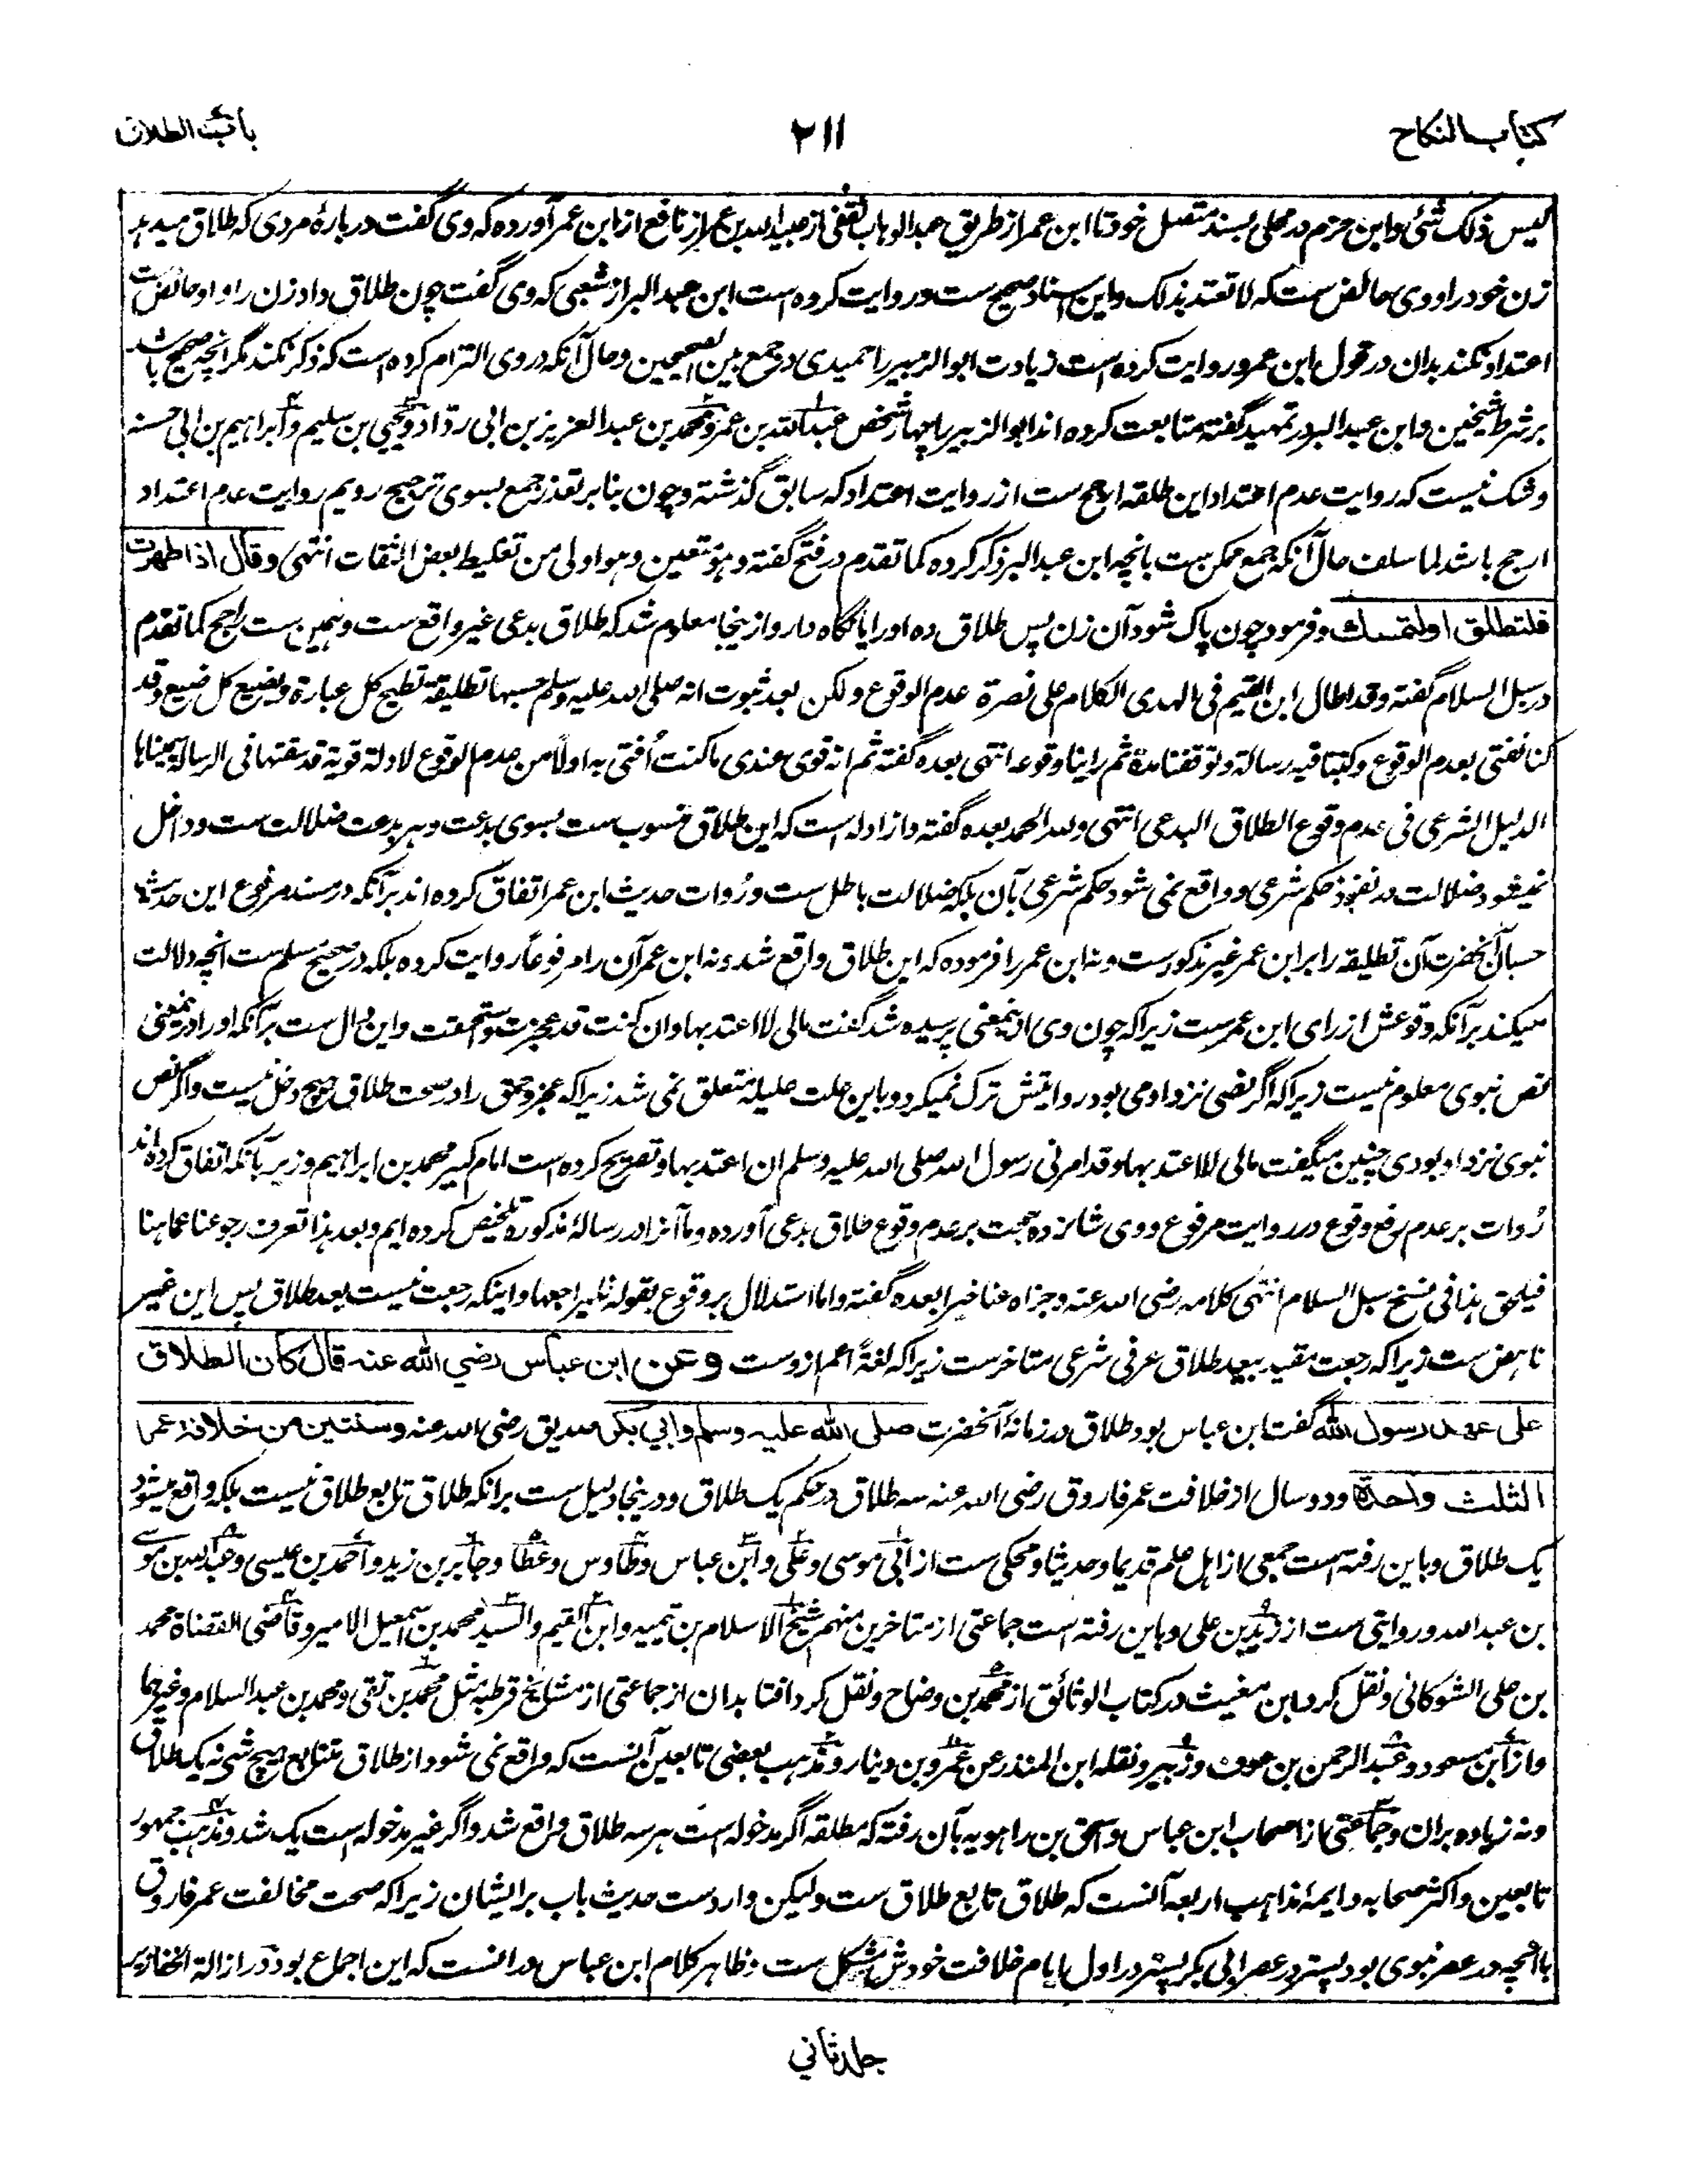 کتاب النکاح
۲۱۱
باب الطلاق
لیس ذلک بشئی وابن حزم در محلی بسند متصل خود تا ابن عمر از طریق عبد الوہاب ثقفی از عبید اللہ بن عمر از نافع از ابن عمر آورده که وی گفت در بارۂ مردی که طلاق میدہد
زن خود را و وی حائض ست که لا تعتد بذلک واین اسناد صحیح ست و روایت کرده است ابن عبد البر از شعبی که وی گفت چون طلاق داد زن را و او حائض ست
اعتداد نکند بدان در قول ابن عمر و روایت کرده است زیادت ابو الزبیر را حمیدی در جمع بین الصحیحین و حال آنکه در وی التزام کرده است که ذکر نکند مگر انچه صحیح باشد
بر شرط شیخین وابن عبد البر در تمہید گفته متابعت کرده اند ابو الزبیر را چہار شخص عبد اللہ بن عمر و محمد بن عبد العزیز بن ابی رواد و یحیی بن سلیم و ابراہیم بن ابی حسنه
و شک نیست که روایت عدم اعتداد این طلقه ارجح ست از روایت اعتداد که سابق گذشته و چون بنا بر تعذر جمع بسوی ترجیح رویم روایت عدم اعتداد
ارجح باشد لما سلف حال آنکه جمع ممکن ست بانچه ابن عبد البر ذکر کرده کما تقدم در فتح گفته و ہو متعین و ہو اولی من تغلیط بعض الثقات انتہی وقال اذا طهرت
فلتطلق او لتمسک و فرمود چون پاک شود آن زن پس طلاق ده او را یا نگاه دار و از ینجا معلوم شد که طلاق بدعی غیر واقع ست و ہمین ست راجح کما تقدم
در سبل السلام گفته و قد اطال ابن القیم فی الہدی الکلام علی نصرة عدم الوقوع ولکن بعد ثبوت انه صلی اللہ علیہ وسلم حسبہا تطلیقة تطیح کل عبارة و یضیع کل ضیع و قد
کنا نفتی بعدم الوقوع و کتبنا فیه رسالة و توقفنا مدة ثم راینا وقوعه انتہی بعده گفته ثم انه قوی عندی ما کنت أفتی به اولاً من عدم الوقوع لادلة قویة قد سقتہا فی الرسالة سمیناہا
الدلیل الشرعی فی عدم وقوع الطلاق البدعی انتہی و للہ الحمد بعده گفته و از ادله است که این طلاق منسوب ست بسوی بدعت و ہر بدعت ضلالت ست و داخل
نمیشود ضلالت در نفوذ حکم شرعی و واقع نمی شود حکم شرعی بآن بلکه ضلالت باطل ست و رُوات حدیث ابن عمر اتفاق کرده اند بر آنکه در مسند مرفوع این حدیث
حسبان آنحضرت آن تطلیقه را بر ابن عمر غیر مذکور ست و نه ابن عمر را فرموده که این طلاق واقع شد و نه ابن عمر آن را مرفوعاً روایت کرده بلکه در صحیح مسلم ست انچه دلالت
میکند بر آنکه وقوعش از رای ابن عمر ست زیرا که چون وی ازینمعنی پرسیده شد گفت مالی لا اعتد بہا وان کنت قد عجزت واستحمقت واین دال ست بر آنکه او را درینمعنی
نص نبوی معلوم نیست زیرا که اگر نصی نزد او می بود روایتش ترک نمیکرد و باین علت علیله متعلق نمی شد زیرا که عجز و حمق را در صحت طلاق ہیچ دخل نیست و اگر نص
نبوی نزد او بودی چنین میگفت مالی لا اعتد بہا و قد امرنی رسول اللہ صلی اللہ علیہ وسلم ان اعتد بہا و تصریح کرده است امام کبیر محمد بن ابراہیم وزیر بآنکه اتفاق کرده اند
رُوات بر عدم رفع وقوع در روایت مرفوع و وی شانزده حجت بر عدم وقوع طلاق بدعی آورده و ما آنرا در رسالۂ مذکوره تلخیص کرده ایم و بعد ہذا تعرف رجوعنا عما ہنا
فیلحق ہذا فی نسخ سبل السلام انتہی کلامه رضی اللہ عنه و جزاه عنا خیرا بعده گفته و اما استدلال بر وقوع بقوله فلیراجعہا و اینکه رجعت نیست بعد طلاق پس این غیر
ناہض ست زیرا که رجعت مقید ببعد طلاق عرفی شرعی متاخر ست زیرا که لغةً اعم ازوست وعن ابن عباس رضي الله عنه قال كان الطلاق
على عهد رسول الله گفت ابن عباس بود طلاق در زمانۂ آنحضرت صلى الله عليه وسلم وابي بكر صدیق رضی اللہ عنه وسنتين من خلافة عمر
الثلث واحدة و دو سال از خلافت عمر فاروق رضی اللہ عنه سه طلاق در حکم یک طلاق و درینجا دلیل ست برانکه طلاق تابع طلاق نیست بلکه واقع میشود
یک طلاق و باین رفته است جمعی از اہل علم قدیما و حدیثا و محکی ست از ابی موسی و علی و ابن عباس و طاوس و عطا و جابر بن زید و احمد بن عیسی و عبد اللہ بن موسی
بن عبد اللہ و روایتی ست از زید بن علی و باین رفته است جماعتی از متاخرین منہم شیخ الاسلام بن تیمیه و ابن القیم والسید محمد بن اسمعیل الامیر و قاضی القضاة محمد
بن علی الشوکانی و نقل کرد ابن مغیث در کتاب الوثائق از محمد بن وضاح و نقل کرد افتا بدان از جماعتی از مشایخ قرطبه مثل محمد بن تقی و محمد بن عبد السلام و غیرہما
و از ابن مسعود و عبد الرحمن بن عوف و زبیر و نقله ابن المنذر عن عمرو بن دینار و مذہب بعضی تابعین آنست که واقع نمی شود از طلاق متتابع ہیچ شی نه یک طلاق
و نه زیاده بران و جماعتی از اصحاب ابن عباس و اسحق بن راہویه بآن رفته که مطلقه اگر مدخوله است ہر سه طلاق واقع شد و اگر غیر مدخوله است یک شد و مذہب جمہور
تابعین و اکثر صحابه و ایمۂ مذاہب اربعه آنست که طلاق تابع طلاق ست ولیکن وارد ست حدیث باب بر ایشان زیرا که صحت مخالفت عمر فاروق
با انچه در عصر نبوی بود پستر در عصر ابی بکر پستر در اول ایام خلافت خودش مشکل ست و ظاہر کلام ابن عباس درانست که این اجماع بود و در ازالة الخفا
جلد ثاني